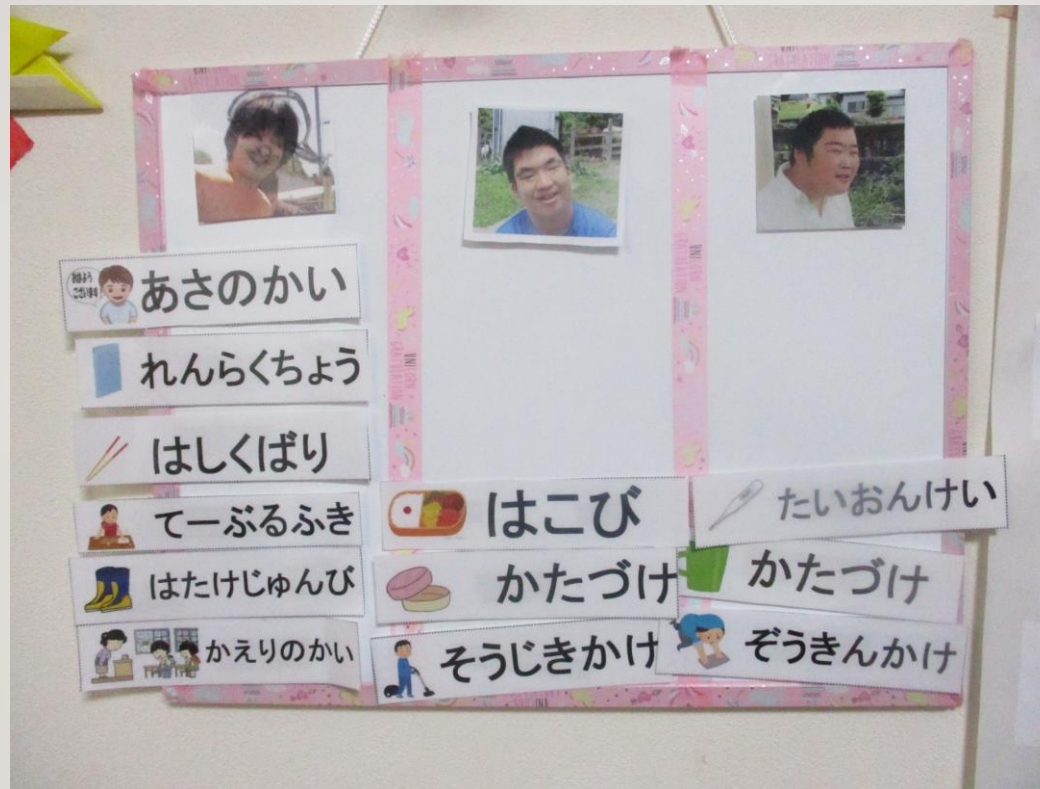 おはよう
ございます
あさのかい
れんらくちょう
はしくばり
てーぶるふき
はたけじゅんび
かえりのかい
はこび
かたづけ
そうじきかけ
たいおんけい
かたづけ
ぞうきんかけ